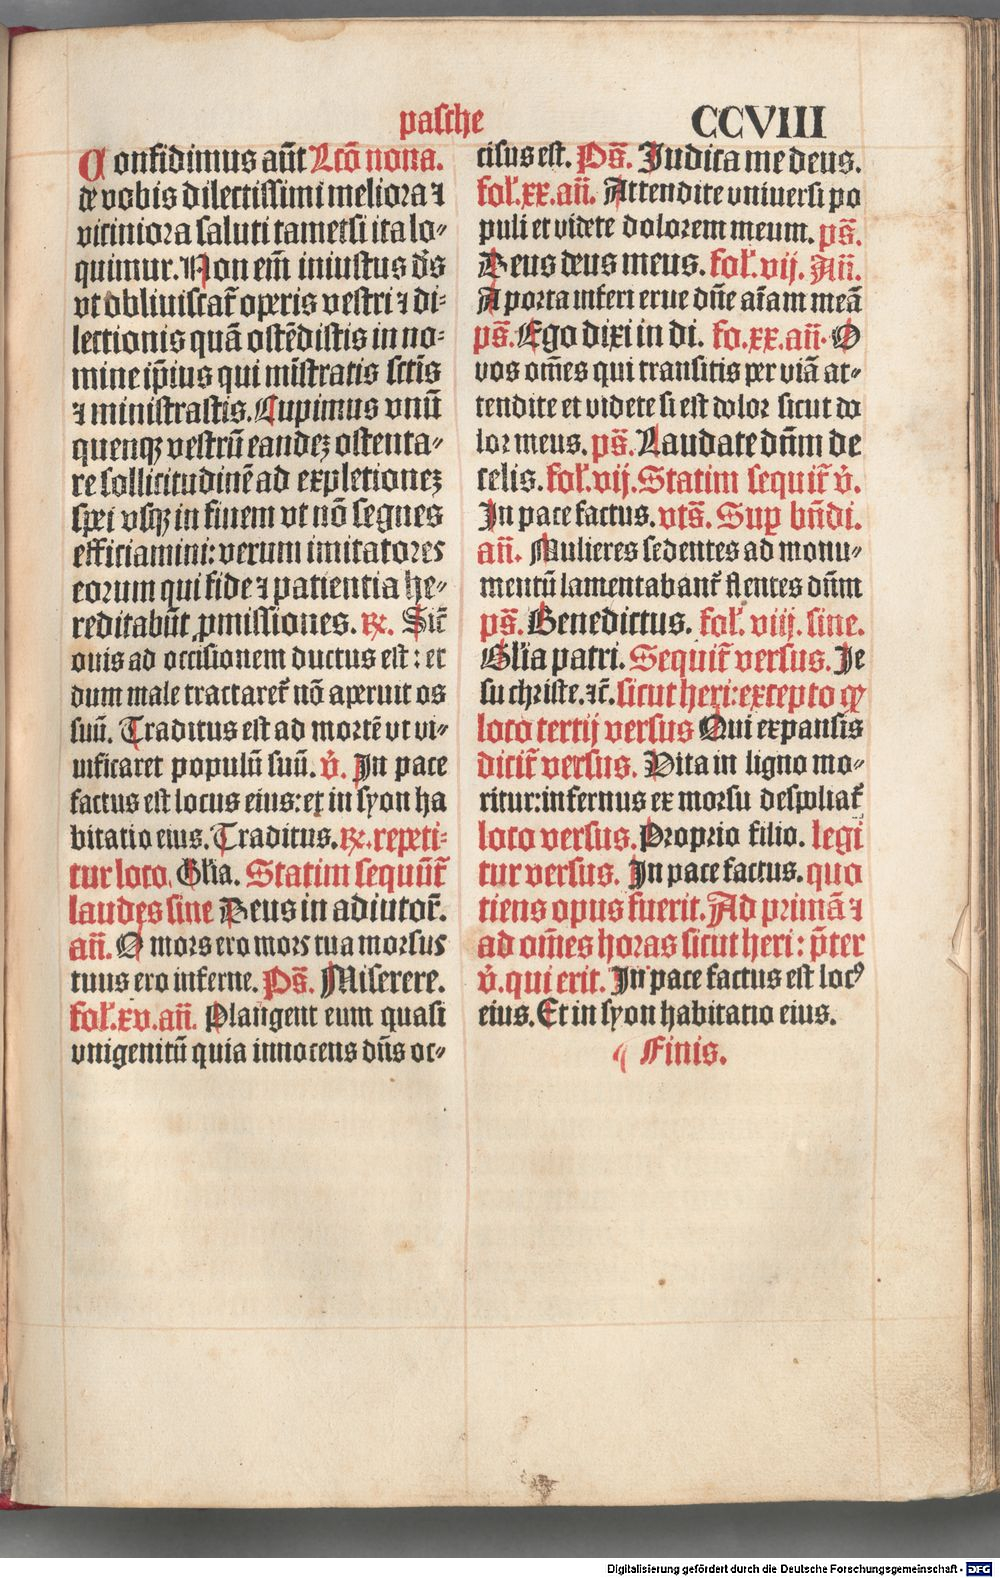 pasche
CCVIII
Confidimus aūt Lcō nona.
de vobis dilectissimi meliora ⁊
viciniora saluti tametsi ita lo-
quimur. Non em̄ iniustus de᷒
vt obliuiscat̄ operis vestri ⁊ di-
lectionis quā ostēdistis in no-
mine ip̄ius qui mīstratis sctīs
⁊ ministrastis. Cupimus vnū
quenqꝫ vestrū eandeꝫ ostenta-
re sollicitudinē ad expletioneꝫ
spei vsqꝫ in finem vt nō segnes
efficiamini: verum imitatores
eorum qui fide ⁊ patientia he-
reditabūt ꝓmissiones. ℟. Sic̄
ouis ad occisionem ductus est: et
dum male tractaret̄ nō aperuit os
suū. Traditus est ad mortē vt vi-
uificaret populū suū. v̄. In pace
factus est locus eius: et in syon ha
bitatio eius. Traditus. ℟. repeti-
tur loco. Glīa. Statim sequūt̄
laudes sine Deus in adiutor̄.
añ. O mors ero mors tua morsus
tuus ero inferne. Ps̄. Miserere.
fol̄. xv. añ. Plangent eum quasi
vnigenitū quia innocens dn̄s oc-
cisus est. Ps̄. Iudica me deus.
fol̄. xx. añ. Attendite vniuersi po
puli et videte dolorem meum. ps̄.
Deus deus meus. fol̄. vij. Añ.
A porta inferi erue dn̄e aīam meā
ps̄. Ego dixi in di. fo. xx. añ. O
vos om̄es qui transitis per viā at-
tendite et videte si est dolor sicut do
lor meus. ps̄. Laudate dn̄m de
celis. fol̄. vij. Statim sequit̄ v̄.
In pace factus. vts̄. Sup bn̄di.
añ. Mulieres sedentes ad monu-
mentū lamentabant̄ flentes dn̄m
ps̄. Benedictus. fol̄. viij. sine.
Glīa patri. Sequit̄ versus. Ie
su christe. ⁊c̄. sicut heri: excepto ꝙ
loco tertij versus Qui expansis
dicit̄ versus. Vita in ligno mo-
ritur: infernus ex morsu despoliat̄
loco versus. Proprio filio. legi
tur versus. In pace factus. quo
tiens opus fuerit. Ad primā ⁊
ad om̄es horas sicut heri: p̄ter
v̄. qui erit. In pace factus est locꝰ
eius. Et in syon habitatio eius.
Finis.
Digitalisierung gefördert durch die Deutsche Forschungsgemeinschaft - DFG